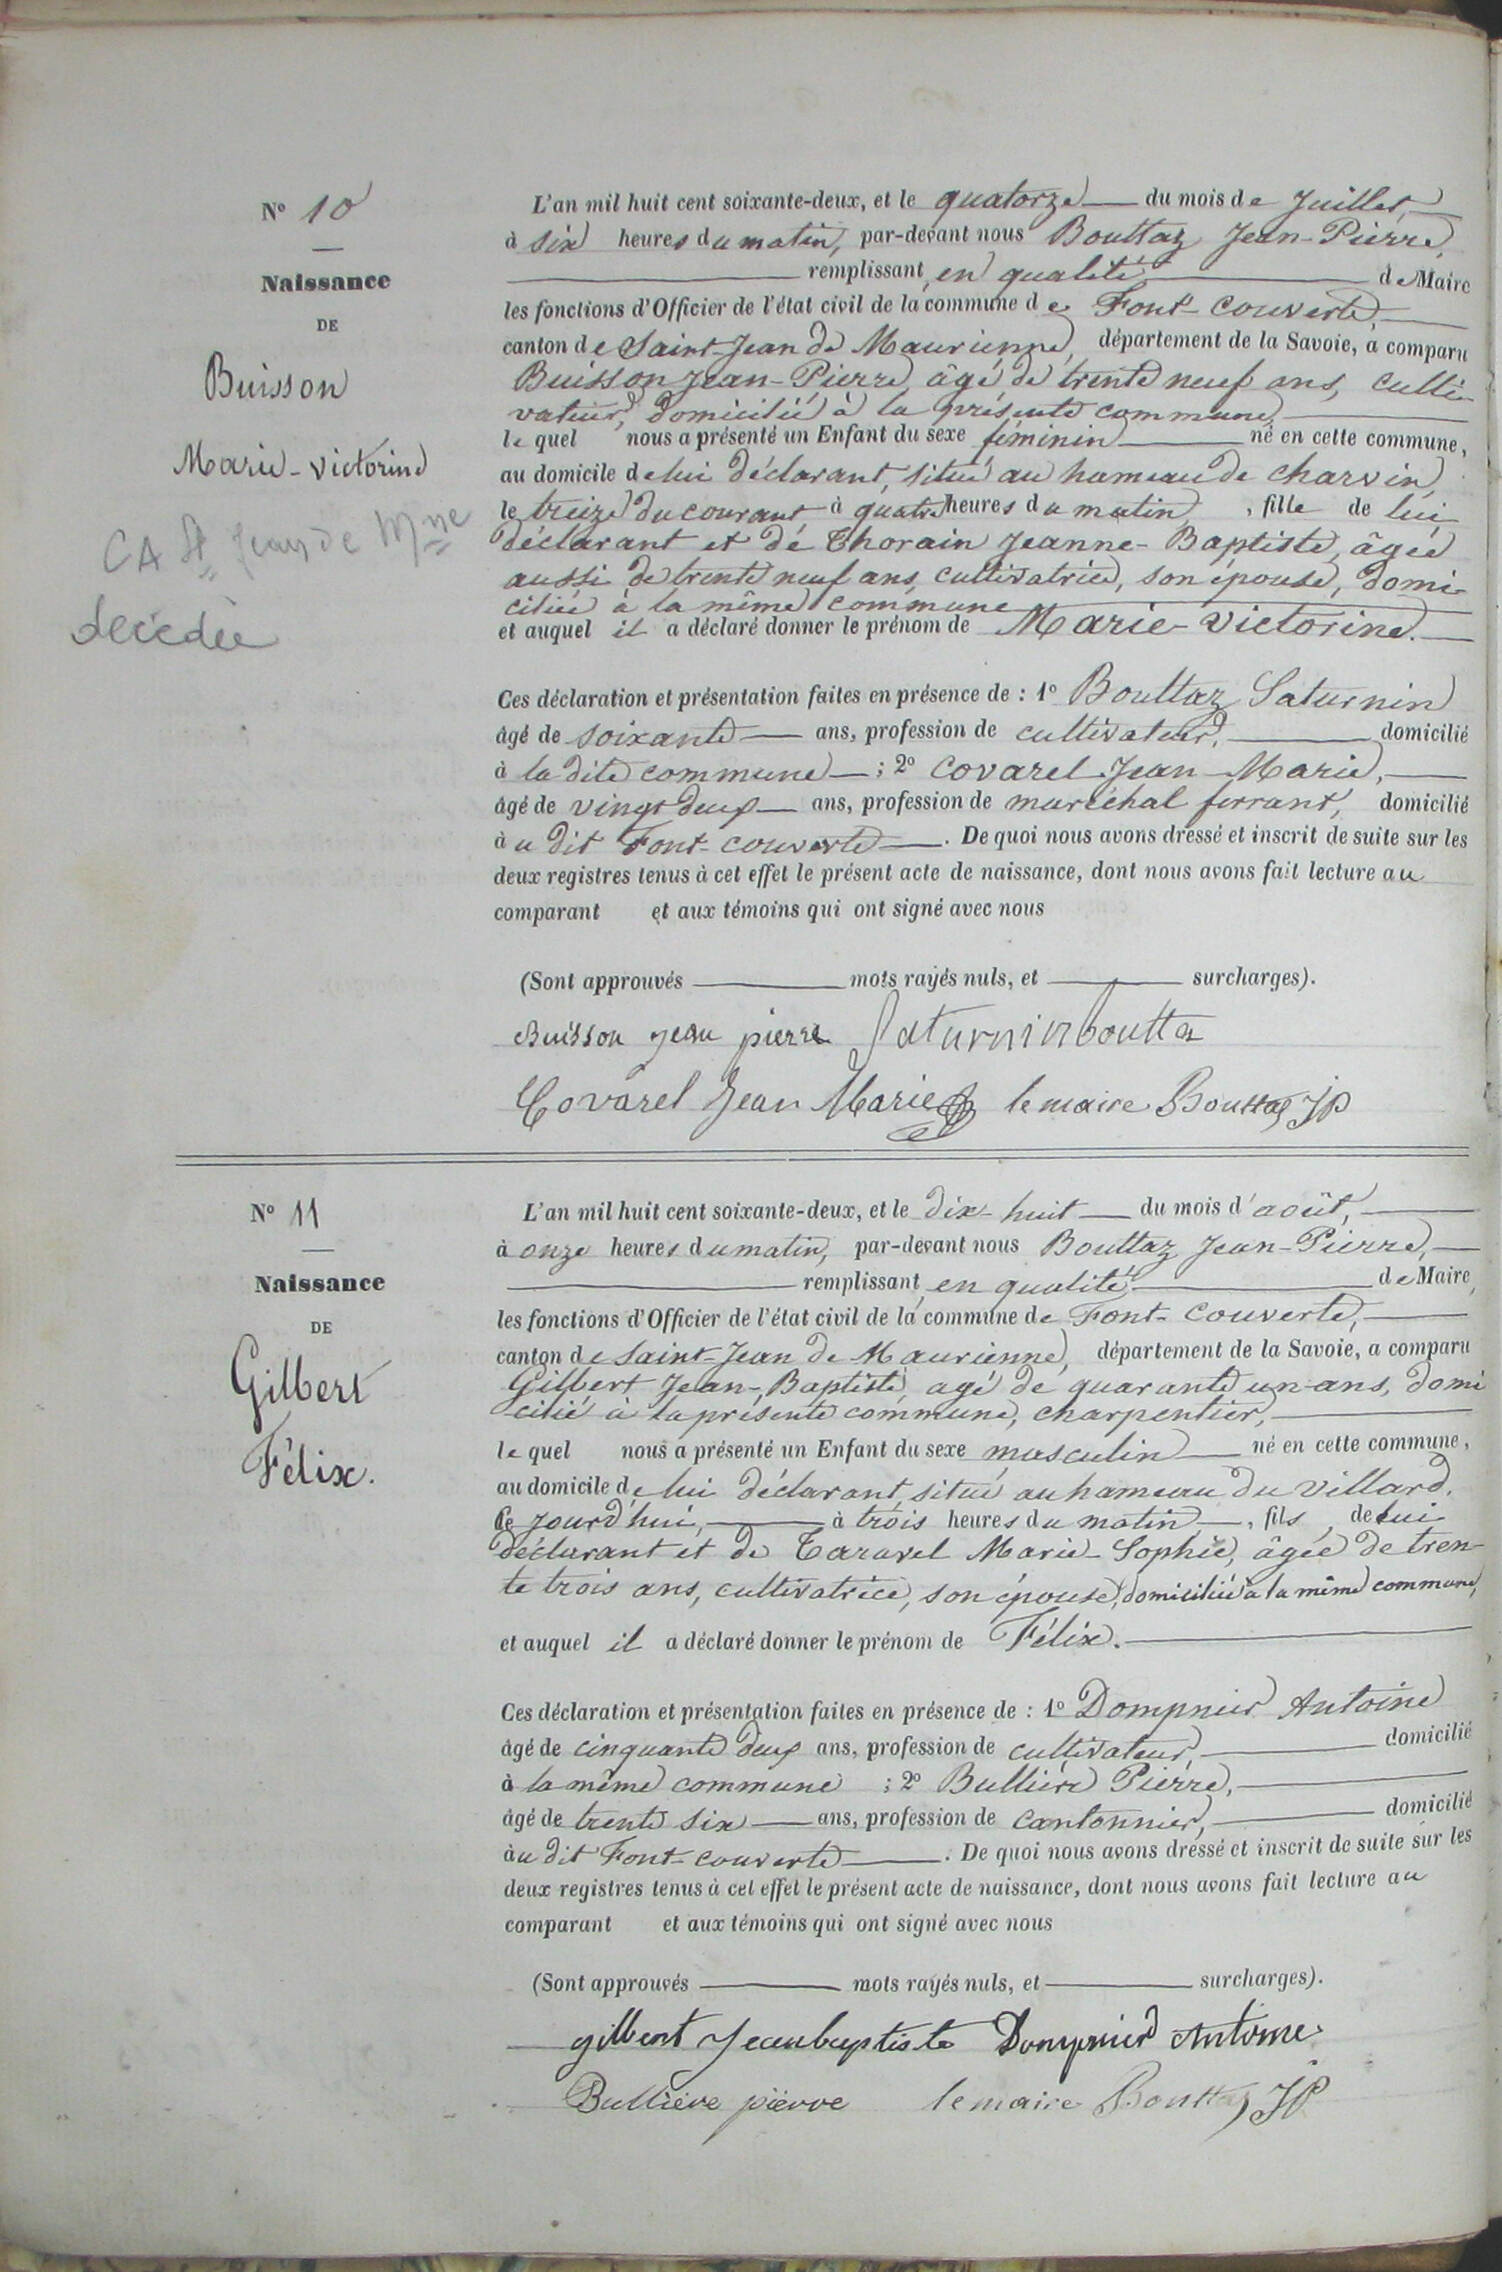 N° 10
Naissance
DE
Buisson
Marie-Victorine
CA St Jean de Mnne
décédée
L'an mil huit cent soixante-deux, et le quatorze du mois de Juillet,
à six heures du matin, par-devant nous Bouttaz Jean-Pierre,
remplissant, en qualité de Maire
les fonctions d'Officier de l'état civil de la commune de Font-couverte,
canton de Saint-Jean de Maurienne, département de la Savoie, a comparu
Buisson Jean-Pierre, âgé de trente neuf ans, culti-
vateur, domicilié à la présente commune,
lequel nous a présenté un Enfant du sexe féminin né en cette commune,
au domicile de lui déclarant, situé au hameau de charvin,
le treize du courant à quatre heures du matin, fille de lui
déclarant et de Thorain Jeanne-Baptiste, âgée
aussi de trente neuf ans, cultivatrice, son épouse, domi-
ciliée à la même commune
et auquel il a déclaré donner le prénom de Marie-Victorine.
Ces déclaration et présentation faites en présence de : 1° Bouttaz Saturnin
âgé de soixante ans, profession de cultivateur, domicilié
à la dite commune ; 2° Covarel Jean-Marie,
âgé de vingt deux ans, profession de maréchal ferrant, domicilié
au dit Font-couverte. De quoi nous avons dressé et inscrit de suite sur les
deux registres tenus à cet effet le présent acte de naissance, dont nous avons fait lecture au
comparant et aux témoins qui ont signé avec nous
(Sont approuvés mots rayés nuls, et surcharges).
Buisson jean pierre Saturnin boutta
Covarel Jean Marie le maire Bouttaz JP
N° 11
Naissance
DE
Gilbert
Félix.
L'an mil huit cent soixante-deux, et le dix-huit du mois d'août,
à onze heures du matin, par-devant nous Bouttaz Jean-Pierre,
remplissant, en qualité de Maire,
les fonctions d'Officier de l'état civil de la commune de Font-couverte,
canton de Saint-Jean de Maurienne, département de la Savoie, a comparu
Gilbert Jean-Baptiste, agé de quarante un ans, domi
cilié à la présente commune, charpentier,
lequel nous a présenté un Enfant du sexe masculin né en cette commune,
au domicile de lui déclarant, situé au hameau du villard,
ce jourd'hui, à trois heures du matin, fils de lui
déclarant et de Taravel Marie-Sophie, âgée de tren-
te trois ans, cultivatrice, son épouse, domiciliée à la même commune,
et auquel il a déclaré donner le prénom de Félix.
Ces déclaration et présentation faites en présence de : 1° Dompnier Antoine
âgé de cinquante deux ans, profession de cultivateur, domicilié
à la même commune ; 2° Bullière Pierre,
âgé de trente six ans, profession de cantonnier, domicilié
au dit Font-couverte. De quoi nous avons dressé et inscrit de suite sur les
deux registres tenus à cet effet le présent acte de naissance, dont nous avons fait lecture au
comparant et aux témoins qui ont signé avec nous
(Sont approuvés mots rayés nuls, et surcharges).
gilbert Jeanbaptiste Dompnier Antoine
Bullière pierre le maire Bouttaz JP